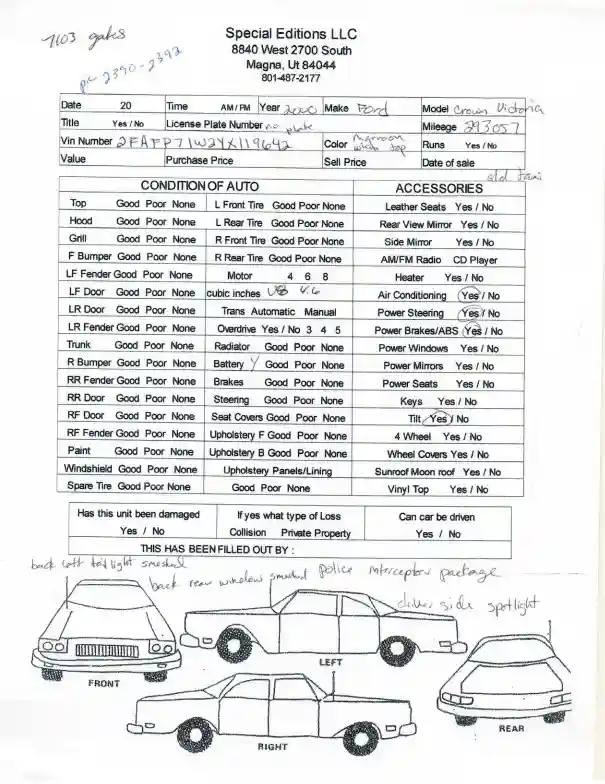 7103 gates
pc 2390-2392
Special Editions LLC
8840 West 2700 South
Magna, Ut 84044
801-487-2177
Date 20 Time AM / PM Year 2000 Make Ford Model Crown Victoria
Title Yes / No License Plate Number no plate Mileage 293057
Vin Number 2FAFP71W2YX119642 Color maroon white top Runs Yes / No
Value Purchase Price Sell Price Date of sale
old taxi
CONDITION OF AUTO ACCESSORIES
Top Good Poor None L Front Tire Good Poor None Leather Seats Yes / No
Hood Good Poor None L Rear Tire Good Poor None Rear View Mirror Yes / No
Grill Good Poor None R Front Tire Good Poor None Side Mirror Yes / No
F Bumper Good Poor None R Rear Tire Good Poor None AM/FM Radio CD Player
LF Fender Good Poor None Motor 4 6 8 Heater Yes / No
LF Door Good Poor None cubic inches V8 4.6 Air Conditioning Yes / No
LR Door Good Poor None Trans Automatic Manual Power Steering Yes / No
LR Fender Good Poor None Overdrive Yes / No 3 4 5 Power Brakes/ABS Yes / No
Trunk Good Poor None Radiator Good Poor None Power Windows Yes / No
R Bumper Good Poor None Battery Y Good Poor None Power Mirrors Yes / No
RR Fender Good Poor None Brakes Good Poor None Power Seats Yes / No
RR Door Good Poor None Steering Good Poor None Keys Yes / No
RF Door Good Poor None Seat Covers Good Poor None Tilt Yes / No
RF Fender Good Poor None Upholstery F Good Poor None 4 Wheel Yes / No
Paint Good Poor None Upholstery B Good Poor None Wheel Covers Yes / No
Windshield Good Poor None Upholstery Panels/Lining Sunroof Moon roof Yes / No
Spare Tire Good Poor None Good Poor None Vinyl Top Yes / No
Has this unit been damaged If yes what type of Loss Can car be driven
Yes / No Collision Private Property Yes / No
THIS HAS BEEN FILLED OUT BY :
back left tail light smashed
back rear window smashed police interceptor package
driver side spotlight
LEFT
FRONT
REAR
RIGHT